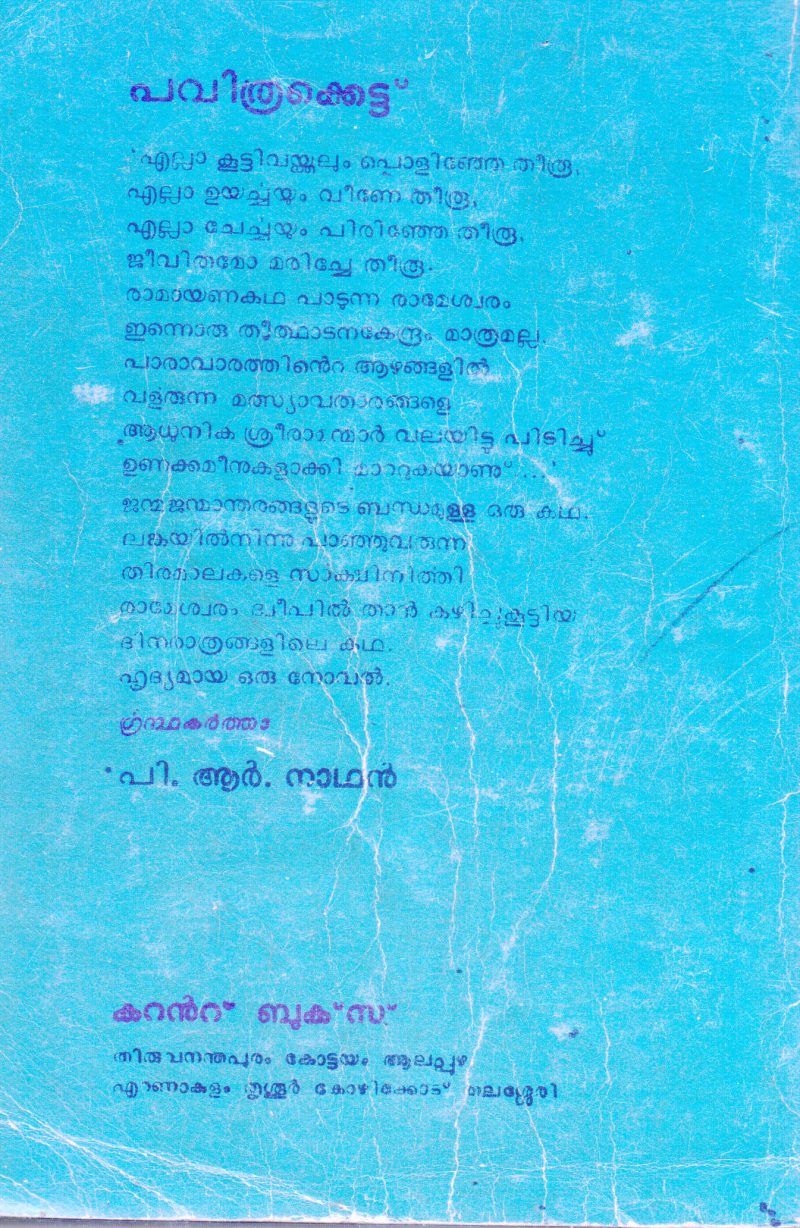 പവിത്രക്കെട്ട്
'എല്ലാ കൂട്ടിവയ്പ്പുകളും പൊളിഞ്ഞേ തീരൂ,
എല്ലാ ഉയർച്ചയും വീണേ തീരൂ,
എല്ലാ ചേർച്ചയും പിരിഞ്ഞേ തീരൂ,
ജീവിതമോ മരിച്ചേ തീരൂ.
രാമായണകഥ പാടുന്ന രാമേശ്വരം
ഇന്നൊരു തീർത്ഥാടനകേന്ദ്രം മാത്രമല്ല.
പാരാവാരത്തിൻെറ ആഴങ്ങളിൽ
വളരുന്ന മത്സ്യാവതാരങ്ങളെ
ആധുനിക ശ്രീരാമന്മാർ വലയിട്ടു പിടിച്ചു്
ഉണക്കമീനുകളാക്കി മാറ്റുകയാണു് ....'
ജന്മജന്മാന്തരങ്ങളുടെ ബന്ധമുള്ള ഒരു കഥ.
ലങ്കയിൽനിന്നു പാഞ്ഞുവരുന്ന
തിരമാലകളെ സാക്ഷിനിർത്തി
രാമേശ്വരം ദ്വീപിൽ താൻ കഴിച്ചുകൂട്ടിയ
ദിനരാത്രങ്ങളിലെ കഥ.
ഹൃദ്യമായ ഒരു നോവൽ.
ഗ്രന്ഥകർത്താ
പി. ആർ. നാഥൻ
കറൻറ് ബുക്സ്
തിരുവനന്തപുരം കോട്ടയം ആലപ്പുഴ
എറണാകുളം തൃശൂർ കോഴിക്കോട് തലശ്ശേരി